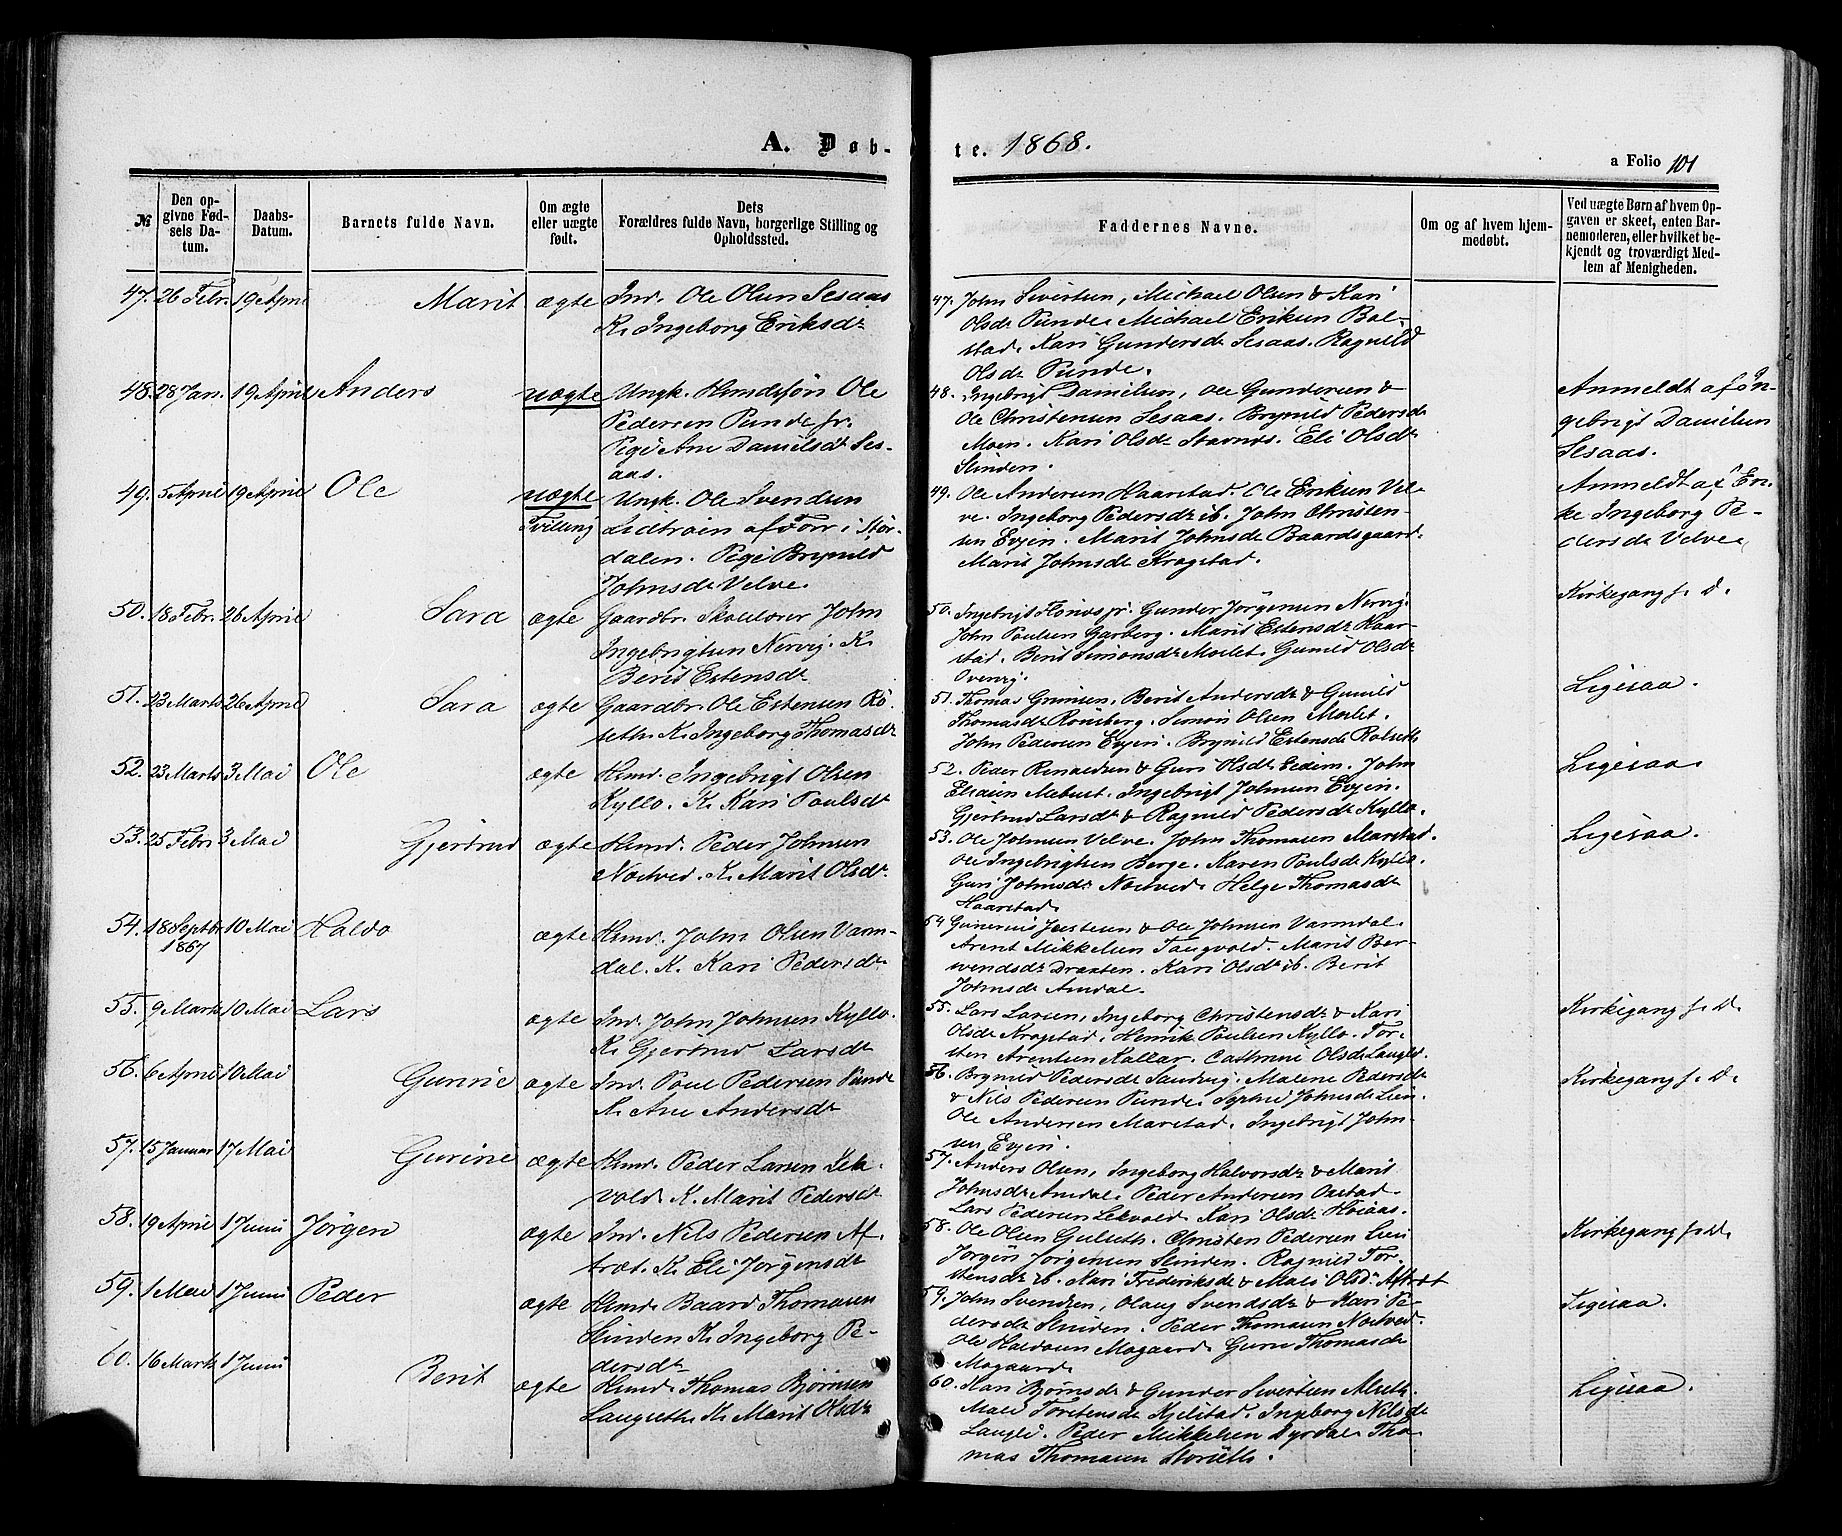 A. Døb-
te. 1868.
a Folio 101
№
Den op-
givne Fød-
sels Da-
tum.
Daabs-
Datum.
Barnets fulde Navn.
Om ægte
eller uægte
født.
Dets
Forældres fulde Navn, borgerlige Stilling og
Opholdssted.
Faddernes Navne.
Om og af hvem hjem-
medøbt.
Ved uægte Børn af hvem Op-
gaven er skeet, enten Bar-
nemoderen, eller hvilket be-
kjendt og troværdigt Med-
lem af Menigheden.
47. 26 Febr. 19 April Marit ægte Ind. Ole Olsen Sesaas
K. Ingeborg Eriksdr
47. John Sivertsen, Michael Olsen & Kari
Olsdr Punde. Michael Eriksen Bal-
stad. Kari Gundersdr Sesaas. Ragnild
Olsdr Punde.
48. 28 Jan. 19 April Anders uægte Ungk. Ole
Pedersen Punde fr.
Pige Ane Danielsdr Ses-
aas.
48. Ingebrigt Danielsen, Ole Gundersen &
Ole Christensen Sesaas. Brynild Pedersdr
Moen. Kari Olsdr Stavnes. Eli Olsdr
Slinden.
Anmeldt af In-
gebrigt Danielsen
Sesaas.
49. 5 April 19 April Ole uægte Tvilling
Ungk. Ole Svendsen
af Forr i Stør-
dalen. Pige Brynild
Johnsdr Velve.
49. Ole Andersen Haarstad. Ole Eriksen Vel-
ve. Ingeborg Pedersdr ib. John Christen-
sen Evjen. Marit Johnsdr Baardsgaard.
Marit Johnsdr Kragstad.
Anmeldt af En-
ke Ingeborg Pe-
dersdr Velve.
50. 18 Febr. 26 April Sara ægte Gaardbr. Skolelærer John
Ingebrigtsen Nervig. K.
Berit Estensdr
50. Ingebrigt Gunder Jørgensen Nervig.
John Paulsen Garberg. Marit Estensdr Haar-
stad. Berit Simonsdr Moslet. Gunild Olsdr
Overvig.
Kirkegang s. D.
51. 23 Marts 26 April Sara ægte Gaardbr. Ole Estensen Rø-
seth. K. Ingeborg Thomasdr
51. Thomas Berit Andersdr & Gunild
Thomasdr Rønsberg. Simon Olsen Moslet.
John Pedersen Evjen. Brynild Estensdr Rolseth
Ligesaa.
52. 23 Marts 3 Mai Ole ægte Husmd. Ingebrigt Olsen
Kyllo. K. Kari Poulsdr
52. Peder Renaldsen & Guri Olsdr Eidem. John
Eliasen Mebust. Ingebrigt Johnsen Evjen.
Gjertrud Larsdr & Ragnild Pedersdr Kyllo.
Ligesaa.
53. 25 Febr. 3 Mai Gjertrud ægte Husmd. Peder Johnsen
Nostved. K. Marit Olsdr.
53. Ole Johnsen Velve. John Thomasen Marstad.
Ole Ingebrigtsen Berge. Karen Paulsdr Kyllo.
Guri Johnsdr Nostved. Helge Thomasdr
Haarstad.
Ligesaa.
54. 18 Septbr 1867 10 Mai Haldo ægte Husmd. John Olsen Varm-
dal. K. Kari Pedersdr.
54. Gunerius Jensen & Ole Johnsen Varmdal.
Arent Mikkelsen Tangvold. Marit Ber-
wendsdr Draxten. Kari Olsdr ib. Berit
Johnsdr Amdal.
55. 9 Marts 10 Mai Lars ægte Ind. John Johnsen Kyllo.
K. Gjertrud Larsdr
55. Lars Larsen, Ingeborg Christensdr & Kari
Olsdr Kragstad. Henrik Paulsen Kyllo. Tor-
sten Arentsen Kallar. Cathrine Olsdr Langli.
Kirkegang s. D.
56. 6 April 10 Mai Gurine ægte Ind. Poul Pedersen Punde
K. Ane Andersdr
56. Brynild Pedersdr Sandvig. Malene Pedersdr
& Nils Pedersen Punde. Sophie Johnsdr Lien.
Ole Andersen Marstad. Ingebrigt John-
sen Evjen.
Kirkegang s. D.
57. 15 Januar 17 Mai Gurine ægte Husmd. Peder Larsen Lek-
vold. K. Marit Pedersdr
57. Anders Olsen, Ingeborg Halvorsdr & Marit
Johnsdr Amdal. Peder Andersen Aastad.
Lars Pedersen Lekvold. Kari Olsdr Høiaas.
58. 19 April 1 Juni Jørgen ægte Ind. Nils Pedersen Af-
træt. K. Eli Jørgensdr
58. Ole Olsen Gulseth. Christen Pedersen Lien
Jørgen Jørgensen Slinden. Ragnild Tor-
stensdr ib. Kari Frederiksdr & Mali Olsdr Aftræt
Kirkegang s. D.
59. 1 Mai 1 Juni Peder ægte Husmd. Baard Thomasen
Slinden K. Ingeborg Pe-
dersdr
59. John Svendsen, Olaug Svendsdr & Kari Pe-
dersdr Slinden. Peder Thomasen Nostved.
Ole Haldosen Mogaard. Guru Thomasdr
Mogaard.
Ligesaa.
60. 16 Marts 1 Juni Berit ægte Husmd. Thomas Bjørnsen
Langseth. K. Marit Olsdr
60. Kari Bjørnsdr & Gunder Sivertsen
Mali Torstensdr Kjelstad. Ingeborg Nilsdr
Langli. Peder Mikkelsen Dyrdal. Tho-
mas Thomasen Storseth.
Ligesaa.